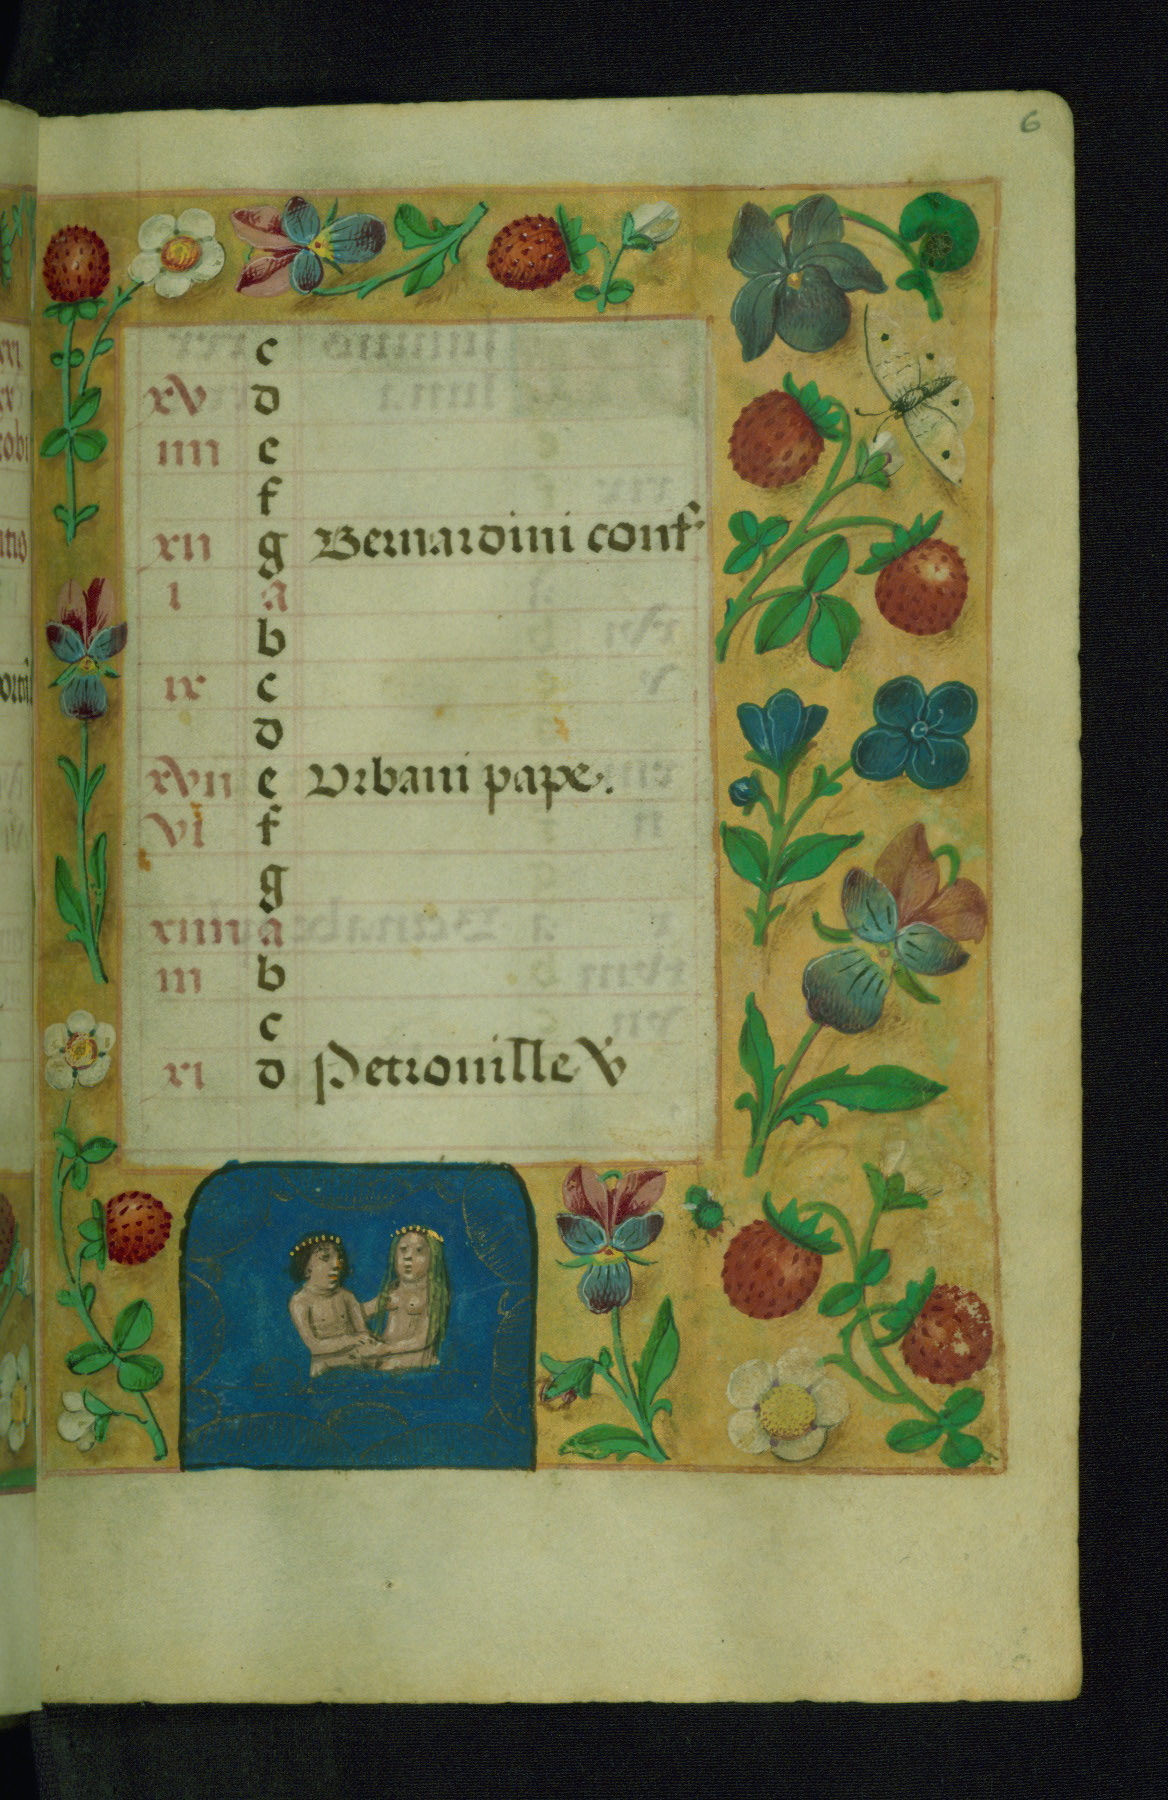 6
c
xv d
iiii e
f
xii g Bernardini conf
i a
b
ix c
d
xvii e Vrbani pape.
vi f
g
xiiii a
iii b
c
xi d Petronille v